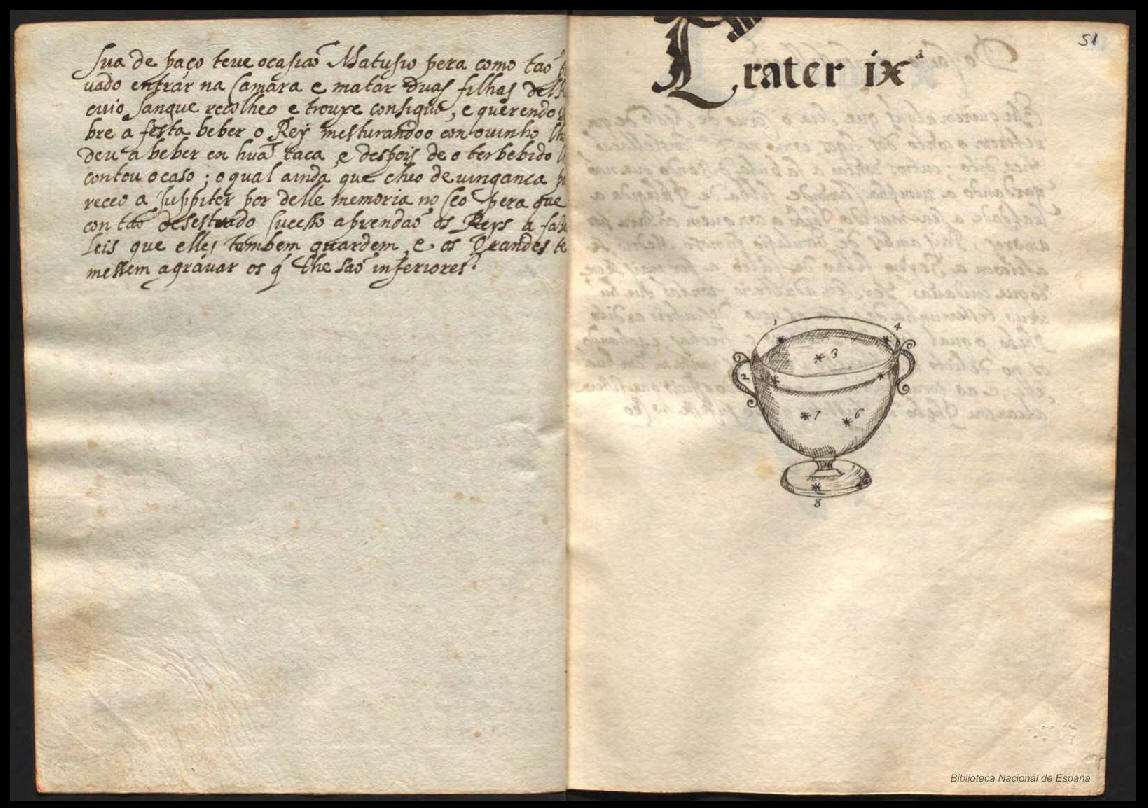 sua de paço teve ocasiaõ Matusio pera como taõ
vado entrar na Camara e matar duas filhas del
cuio sangue recolheo e trouxe consiguo, e querendo
bre a festa beber o Rey misturandoo con ovinho
deu a beber en huã taça, e despois de o ter bebido
contou o caso; o qual ainda que cheo de vingança
receo a Juppiter por delle memoria no ceo pera que
con taõ desestrado sucesso aprendaõ os Reys a
leis que elles tambem guardem, e os Grandes
messem agravar os q̃ lhe saõ inferiores.
51
Crater ixª
1
4
3
2
7
6
8
Biblioteca Nacional de España